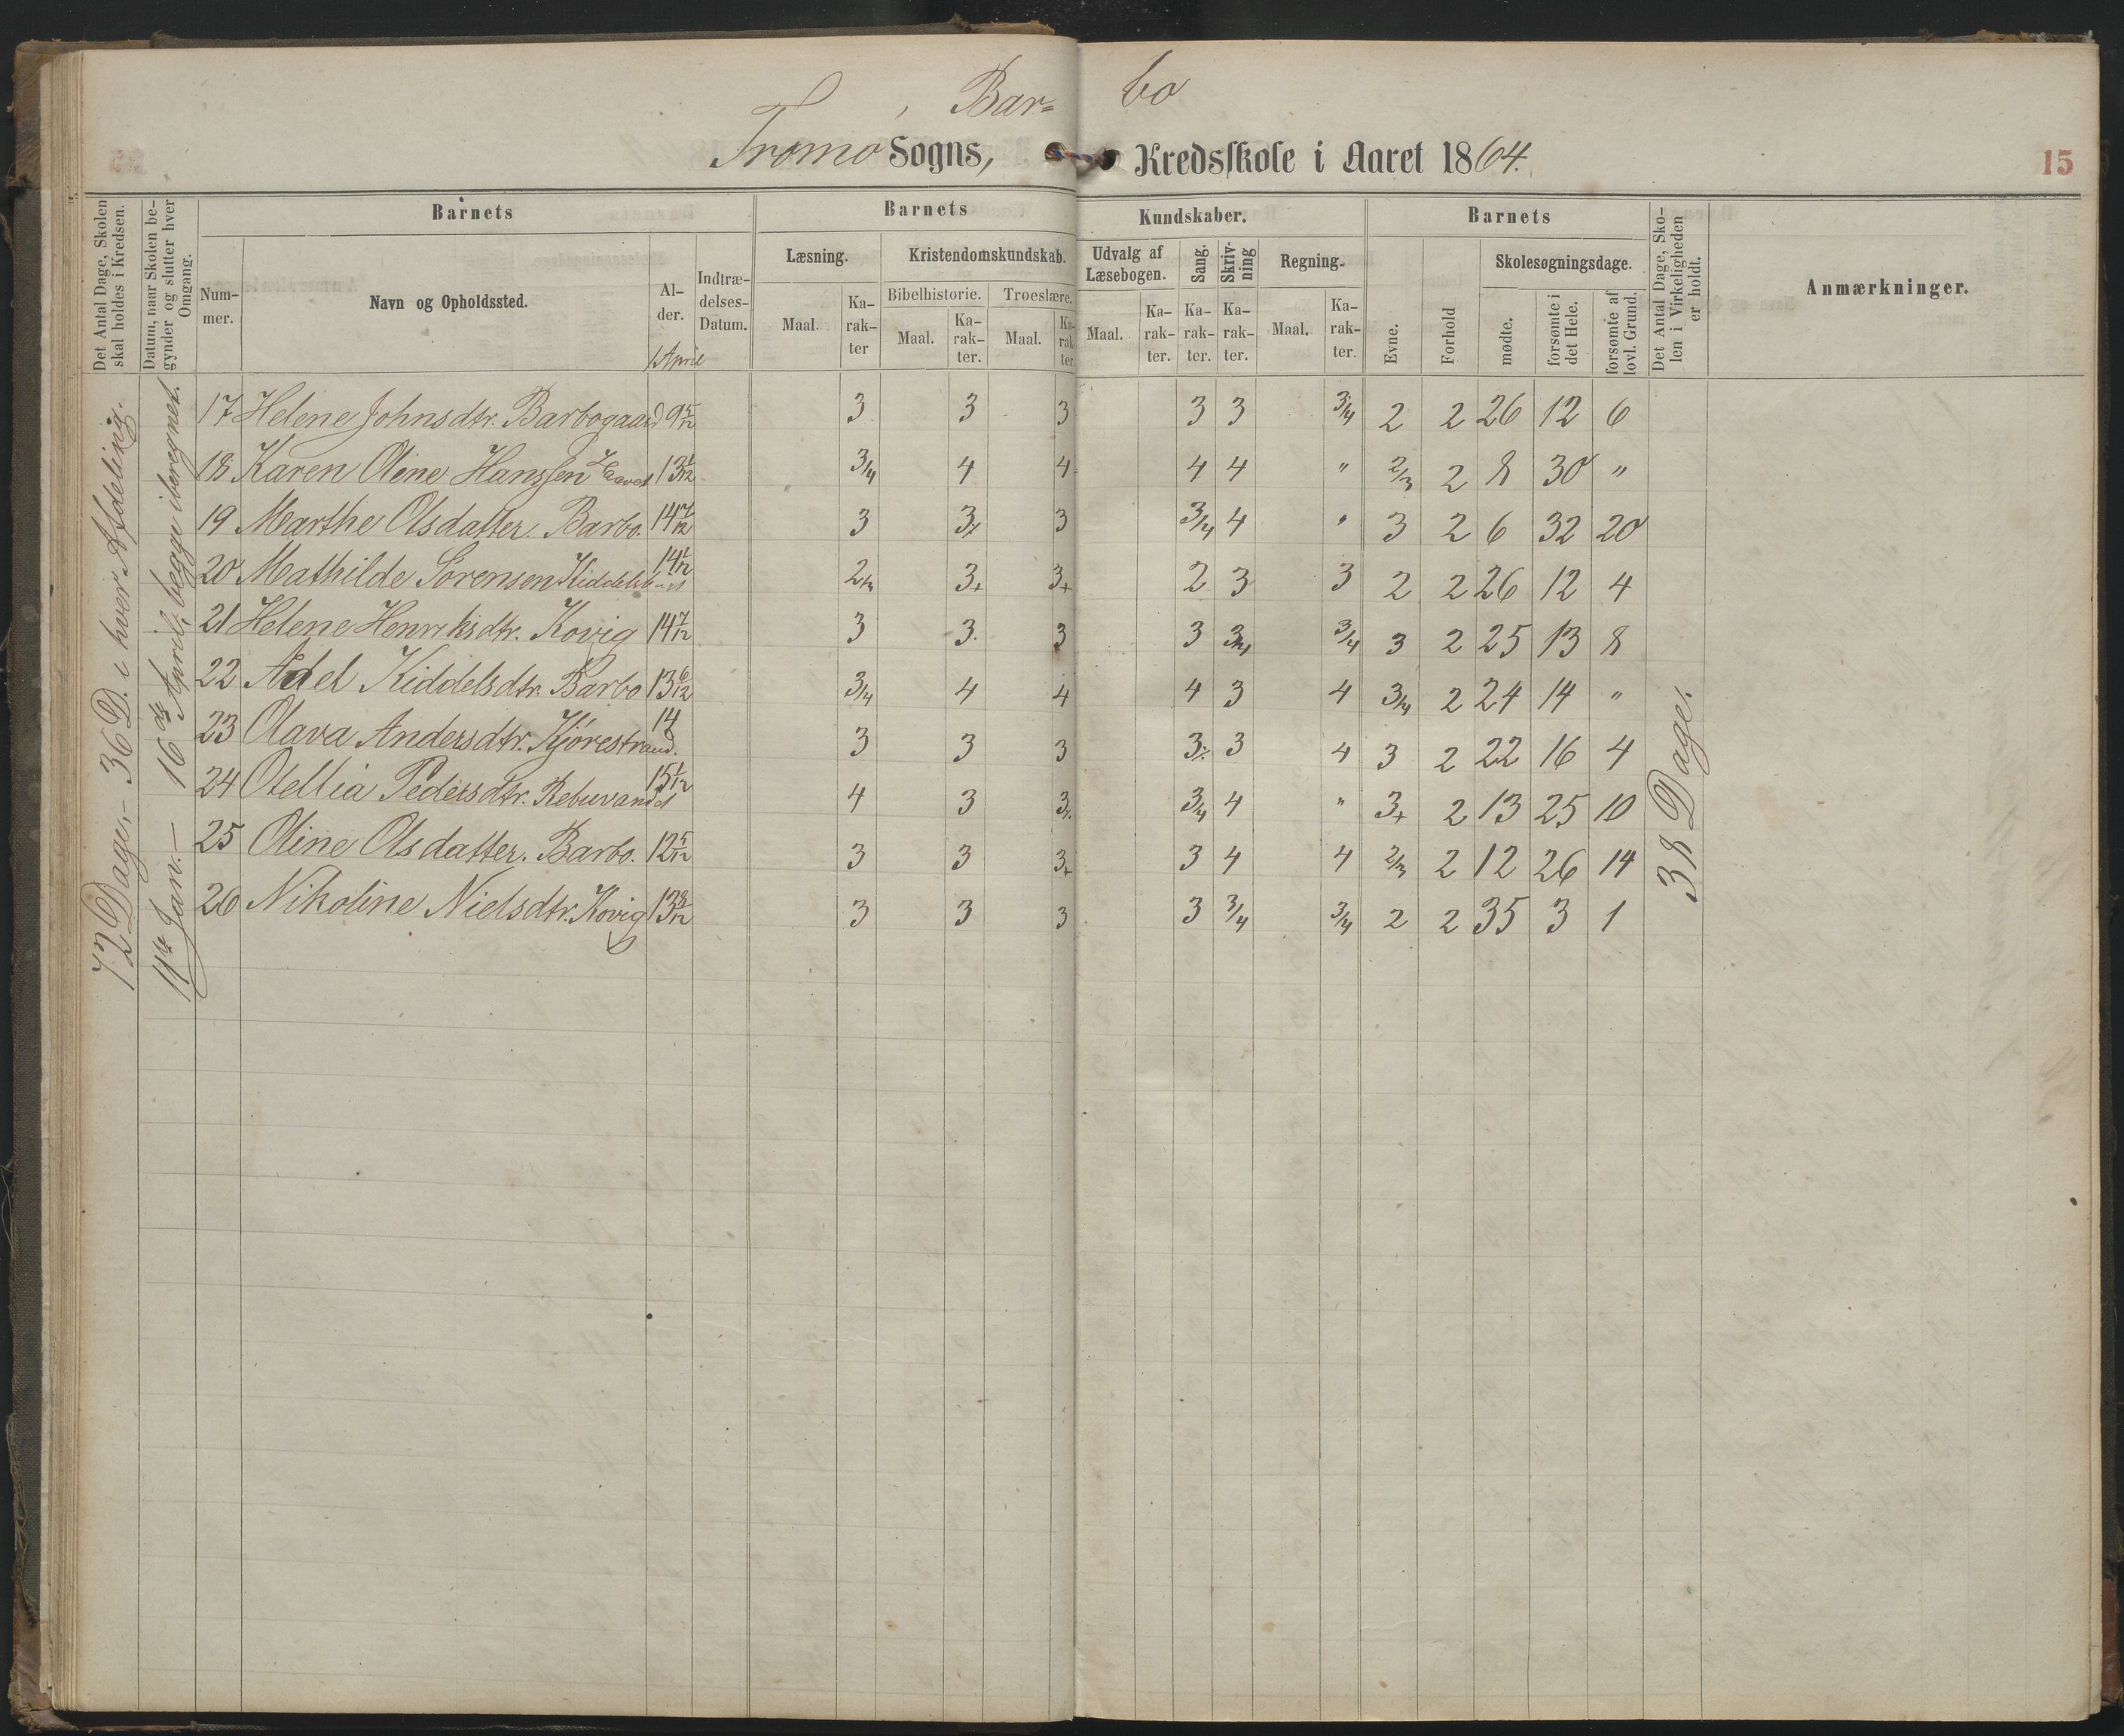 Bar= bo
Tromø Sogns, Kredsskole i Aaret 1864.
15
Det Antal Dage, Skolen skal holdes i Kredsen.
Datum, naar Skolen begynder og slutter hver Omgang.
Barnets
Barnets
Kundskaber.
Barnets
Det Antal Dage, Skolen i Virkeligheden er holdt.
Anmærkninger.
Nummer.
Navn og Opholdssted.
Alder.
1 April
Indtrædelses-Datum.
Læsning.
Kristendomskundskab.
Udvalg af Læsebogen.
Sang.
Skrivning
Regning.
Skolesøgningsdage.
Bibelhistorie.
Troeslære.
Maal.
Karakter
Maal.
Karakter.
Maal.
Karakter.
Maal.
Karakter.
Karakter.
Karakter.
Maal.
Karakter.
Evne.
Forhold
mødte.
forsømte i det Hele.
forsømte af lovl. Grund.
72 Dage,- 36 D. i hver Afdeling.
11te Jan. — 16de April, begge iberegnet.
17 Helene Johnsdtr. Barbogaard 9 5/12 3 3 3 3 3 3/4 2 2 26 12 6
18 Karen Oline Hanssen 13 1/12 3/4 4 4 4 4 " 2/3 2 8 30 "
19 Marthe Olsdatter. Barbo. 14 7/12 3 3÷ 3 3/4 4 " 3 2 6 32 20
20 Mathilde Sørensen 14 1/12 2/3 3+ 3+ 2 3 3 2 2 26 12 4
21 Helene Henriksdtr. Kovig 14 7/12 3 3 3 3 3/4 3/4 3 2 25 13 8
22 Adel Kiddelsdtr. Barbo 13 6/12 3/4 4 4 4 3 4 3/4 2 24 14 "
23 Olava Andersdtr. Kjørestrand. 14 3 3 3 3÷ 3 4 3 2 22 16 4
24 Otellia Pedersdtr. 15 1/12 4 3 3÷ 3/4 4 " 3+ 2 13 25 10
25 Oline Olsdatter. Barbo. 12 5/12 3 3 3+ 3 4 4 2/3 2 12 26 14
26 Nikoline Nielsdtr. Kovig 13 8/12 3 3 3 3 3/4 3/4 2 2 35 3 1
38 Dage.